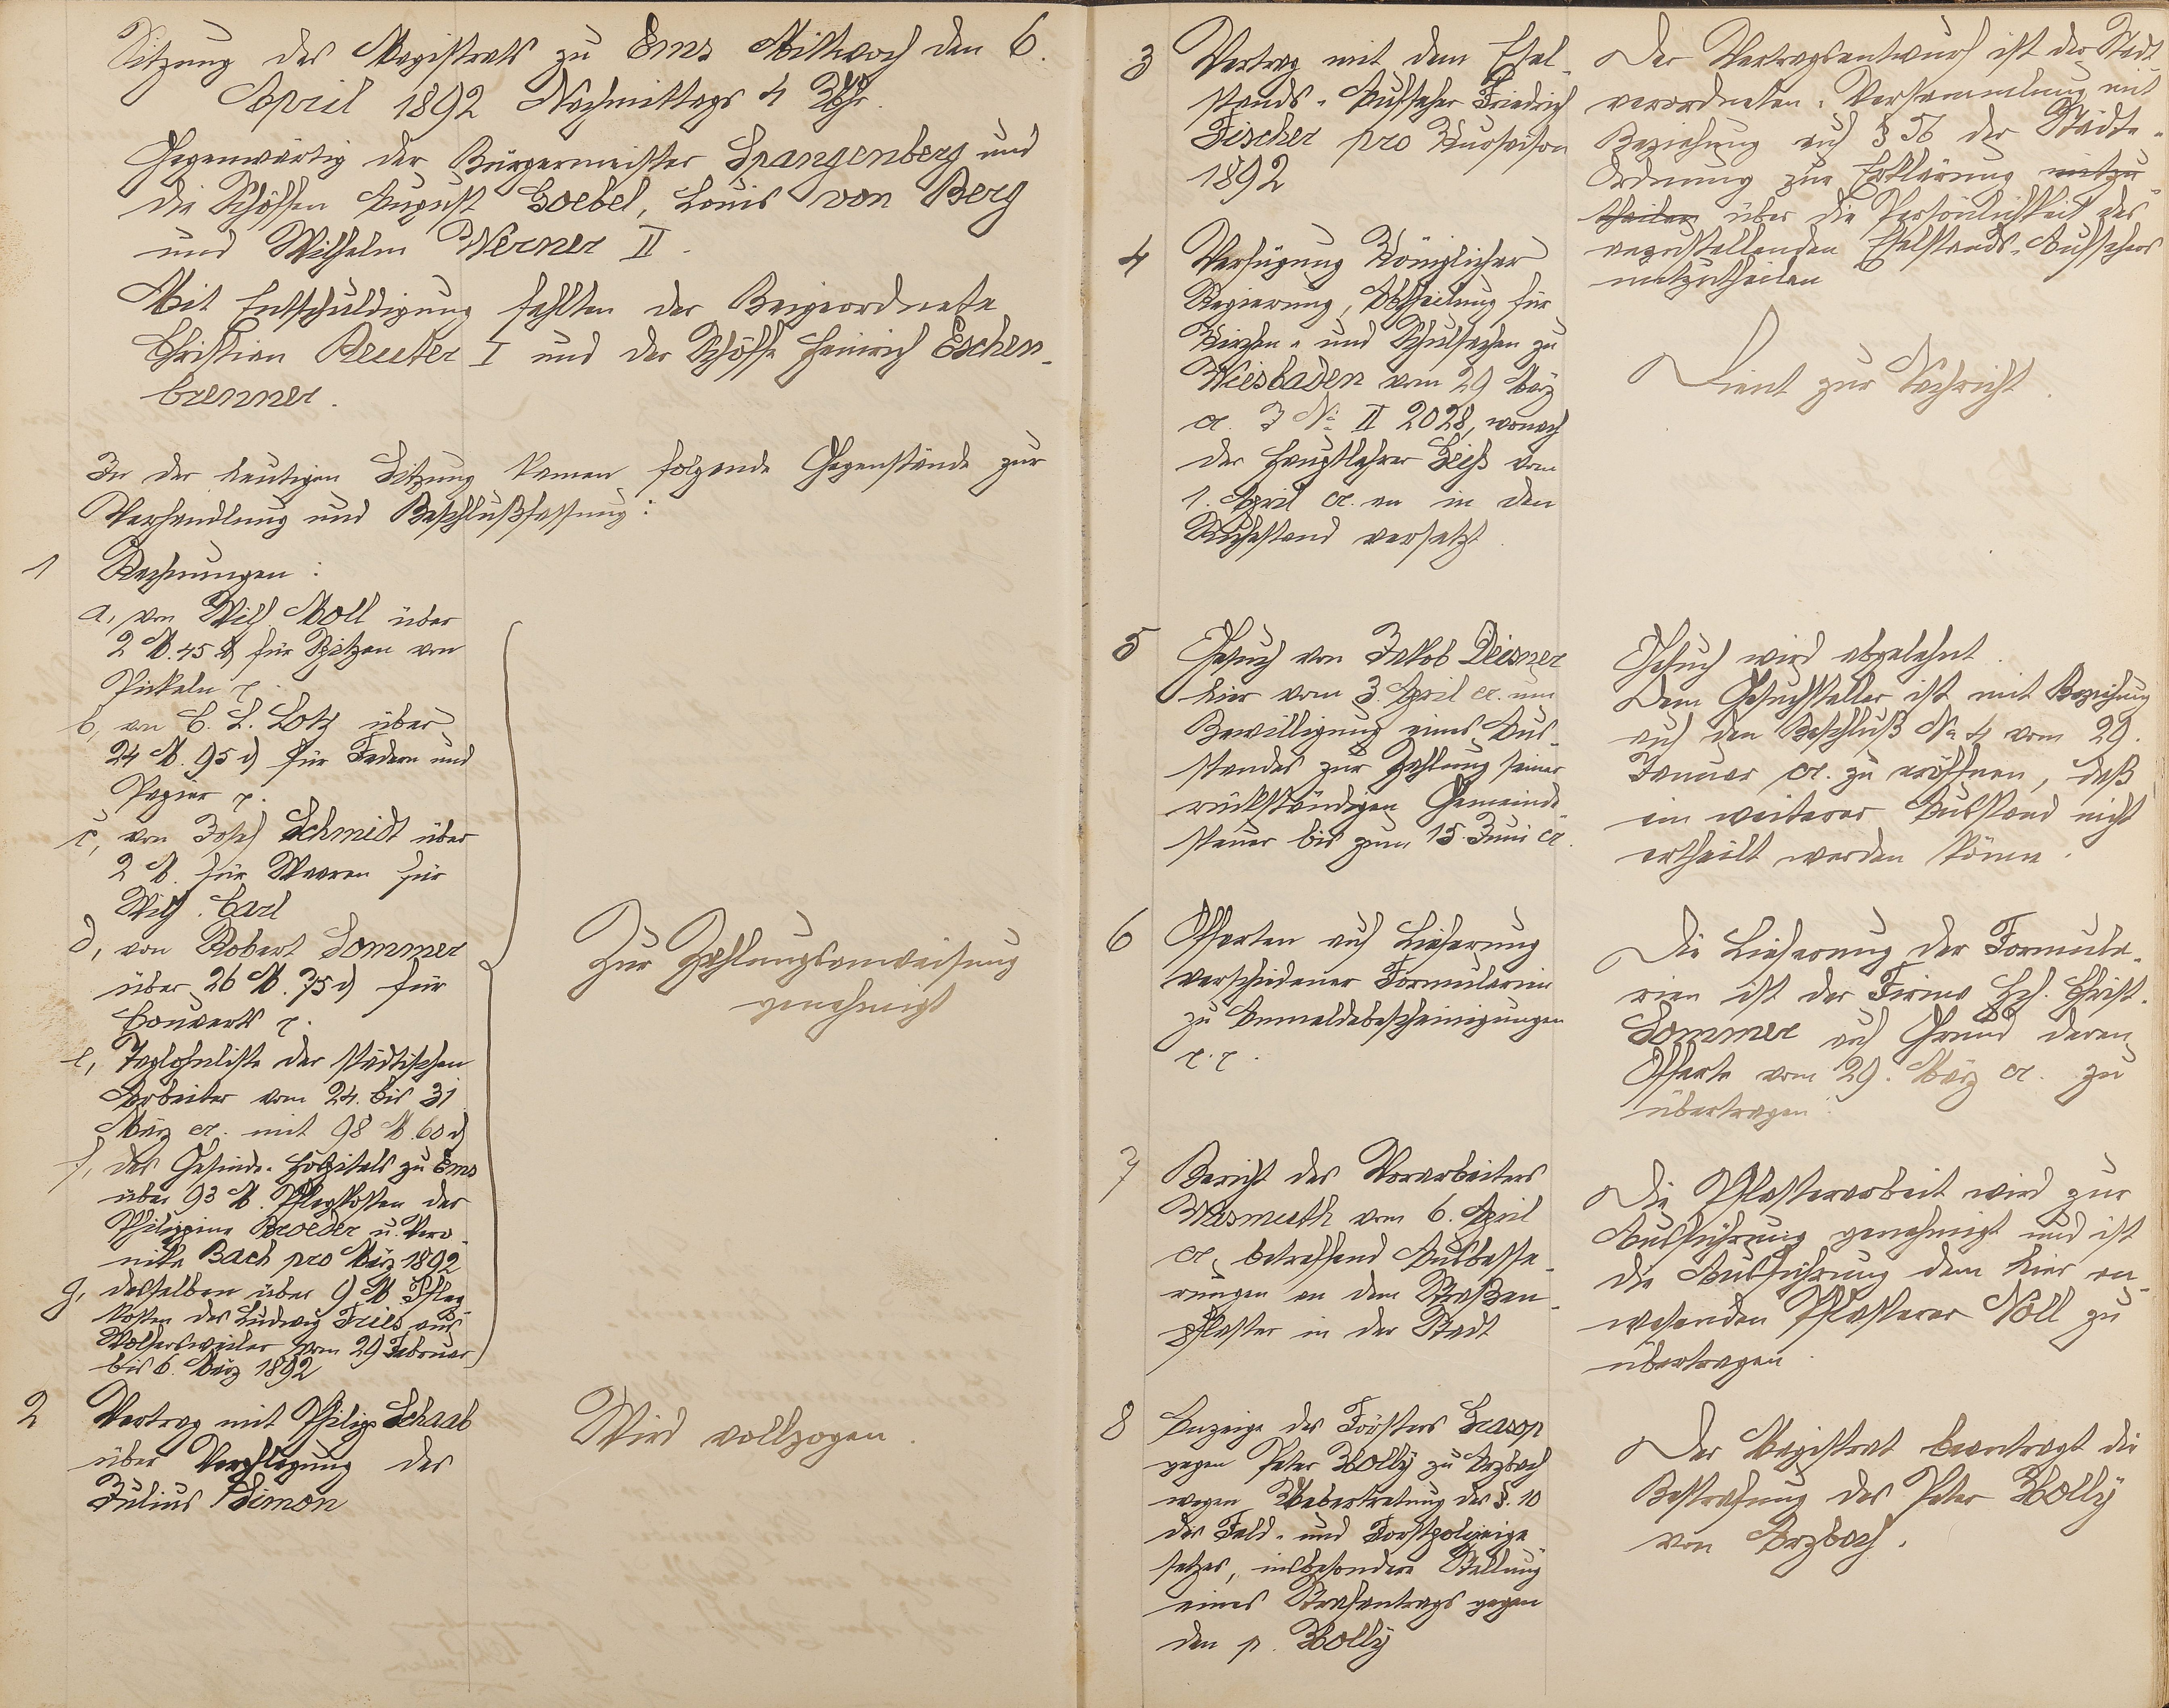 Sitzung des Magistrats zu Ems Mittwoch den 6.
April 1892 Nachmittags 4 Uhr.
Gegenwärtig der Bürgermeister Spangenberg und
die Schöffen August Goebel, Louis von Berg
und Wilhelm Werner II.
Mit Entschuldigung fehlten der Beigeordnete
Christian Reuter I und der Schöffe Heinrich Eschen-
brenner.
In der heutigen Sitzung kamen folgende Gegenstände zur
Verhandlung und Beschlußfassung:
1 Rechnungen:
a, von Wilh. Noll über
2 M. 45 ₰ für Spitzen von
Pickeln pp.
b, von C. L. Lotz über
24 M. 95 ₰ für Federn und
Papier pp.
c, von Josef Schmidt über
2 M. für Waaren für
Wilh. Carl
d, von Robert Sommer
über 26 M. 75 ₰ für
Couverts pp.
e, Taglohnliste der städtischen
Arbeiter vom 24. bis 31
März cr. mit 98 M. 60 ₰
f, des Gesinde-Hospitals zu Ems
über 93 M. Pflegkosten der
Philippine Broeder u. Vero-
nika Bach pro März 1892
g, desselben über 9 M. Pfleg-
kosten des Ludwig Fries aus
Wolfersweiler vom 29 Februar
bis 6. März 1892
Zur Zahlungsanweisung
genehmigt
2 Vertrag mit Philipp Schaab
über Verpflegung des
Julius Simon
Wird vollzogen.
3 Vertrag mit dem Esel-
stands-Aufseher Friedrich
Fischer pro Kursaison
1892
Der Vertragsentwurf ist der Stadt-
verordneten-Versammlung mit
Beziehung auf § 56 der Städte-
Ordnung zur Erklärung mitzu-
theilen über die Persönlichkeit des
anzustellenden Eselstands-Aufsehers
mitzutheilen
4 Verfügung Königlicher
Regierung, Abtheilung für
Kirchen- und Schulsachen zu
Wiesbaden vom 29 März
cr. J № II 2028, wonach
der Hauptlehrer Geiß vom
1. April cr. an in den
Ruhestand versetzt.
Dient zur Nachricht.
5 Gesuch von Jakob Deisner
hier vom 3. April cr. um
Bewilligung eines Aus-
standes zur Zahlung seiner
rückständigen Gemeinde-
steuer bis zum 15. Juni cr.
Gesuch wird abgelehnt.
Dem Gesuchsteller ist mit Beziehung
auf den Beschluß № 4 vom 29.
Januar cr. zu eröffnen, daß
ein weiterer Ausstand nicht
ertheilt werden könne.
6 Offerten auf Lieferung
verschiedener Formularien
zu Anmeldebescheinigungen
p.p.
Die Lieferung der Formula-
rien ist der Firma Hch. Christ.
Sommer auf Grund deren
Offerte vom 29. März cr. zu
übertragen.
7 Bericht des Vorarbeiters
Wasmuth vom 6. April
cr. betreffend Ausbesse-
rungen an dem Straßen-
pflaster in der Stadt
Die Pflasterarbeit wird zur
Ausführung genehmigt und ist
die Ausführung dem hier an-
wesenden Pflasterer Noll zu
übertragen.
8 Anzeige des Försters Grasop
gegen Peter Kolly zu Arzbach
wegen Uebertretung des §. 10
des Feld- und Forstpolizeige-
setzes, insbesondere Stellung
eines Strafantrags gegen
den p. Kolly
Der Magistrat beantragt die
Bestrafung des Peter Kolly
von Arzbach.